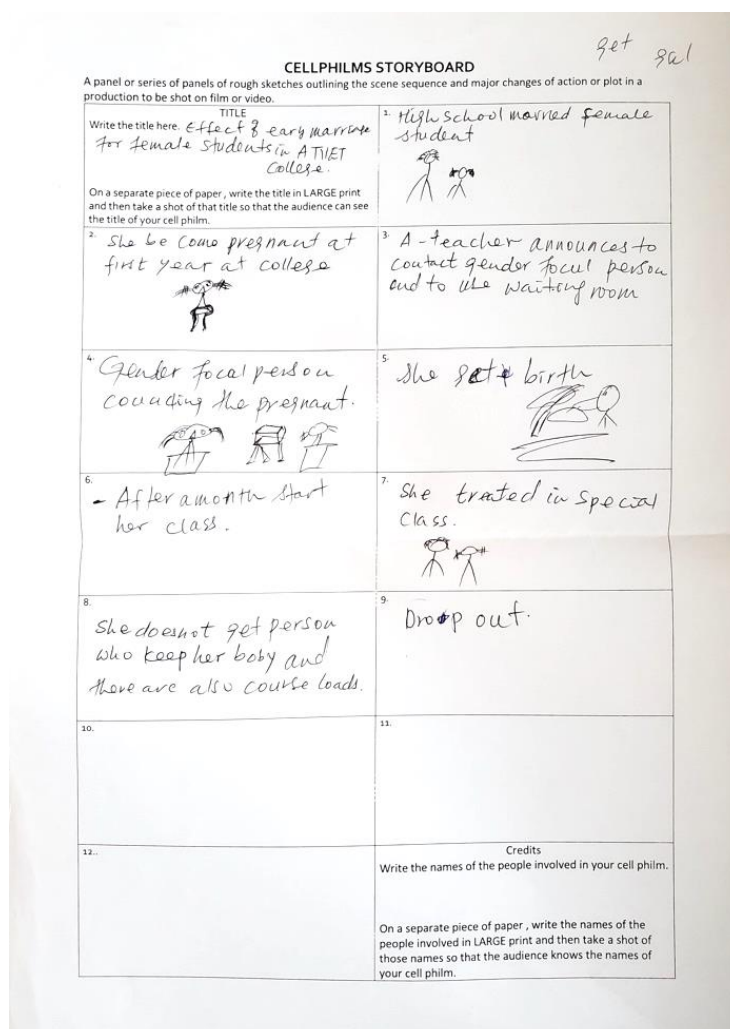 get gal
CELLPHILMS STORYBOARD
A panel or series of panels of rough sketches outlining the scene sequence and major changes of action or plot in a
production to be shot on film or video.
TITLE
Write the title here. Effect of eary marriage
for female students in ATVET
College.
On a separate piece of paper , write the title in LARGE print
and then take a shot of that title so that the audience can see
the title of your cell philm.
1. High school married female
student
2. She be come pregnant at
first year at college
3. A-teacher announces to
contact gender focul person
and to use waiting room
4. Gender focal person
the pregnant.
5. She birth
6. - After a month start
her class.
7. She treated in special
class.
8. She doesnot get person
who keep her boby and
there are also course loads.
9. Droop out.
10.
11.
12..
Credits
Write the names of the people involved in your cell philm.
On a separate piece of paper , write the names of the
people involved in LARGE print and then take a shot of
those names so that the audience knows the names of
your cell philm.